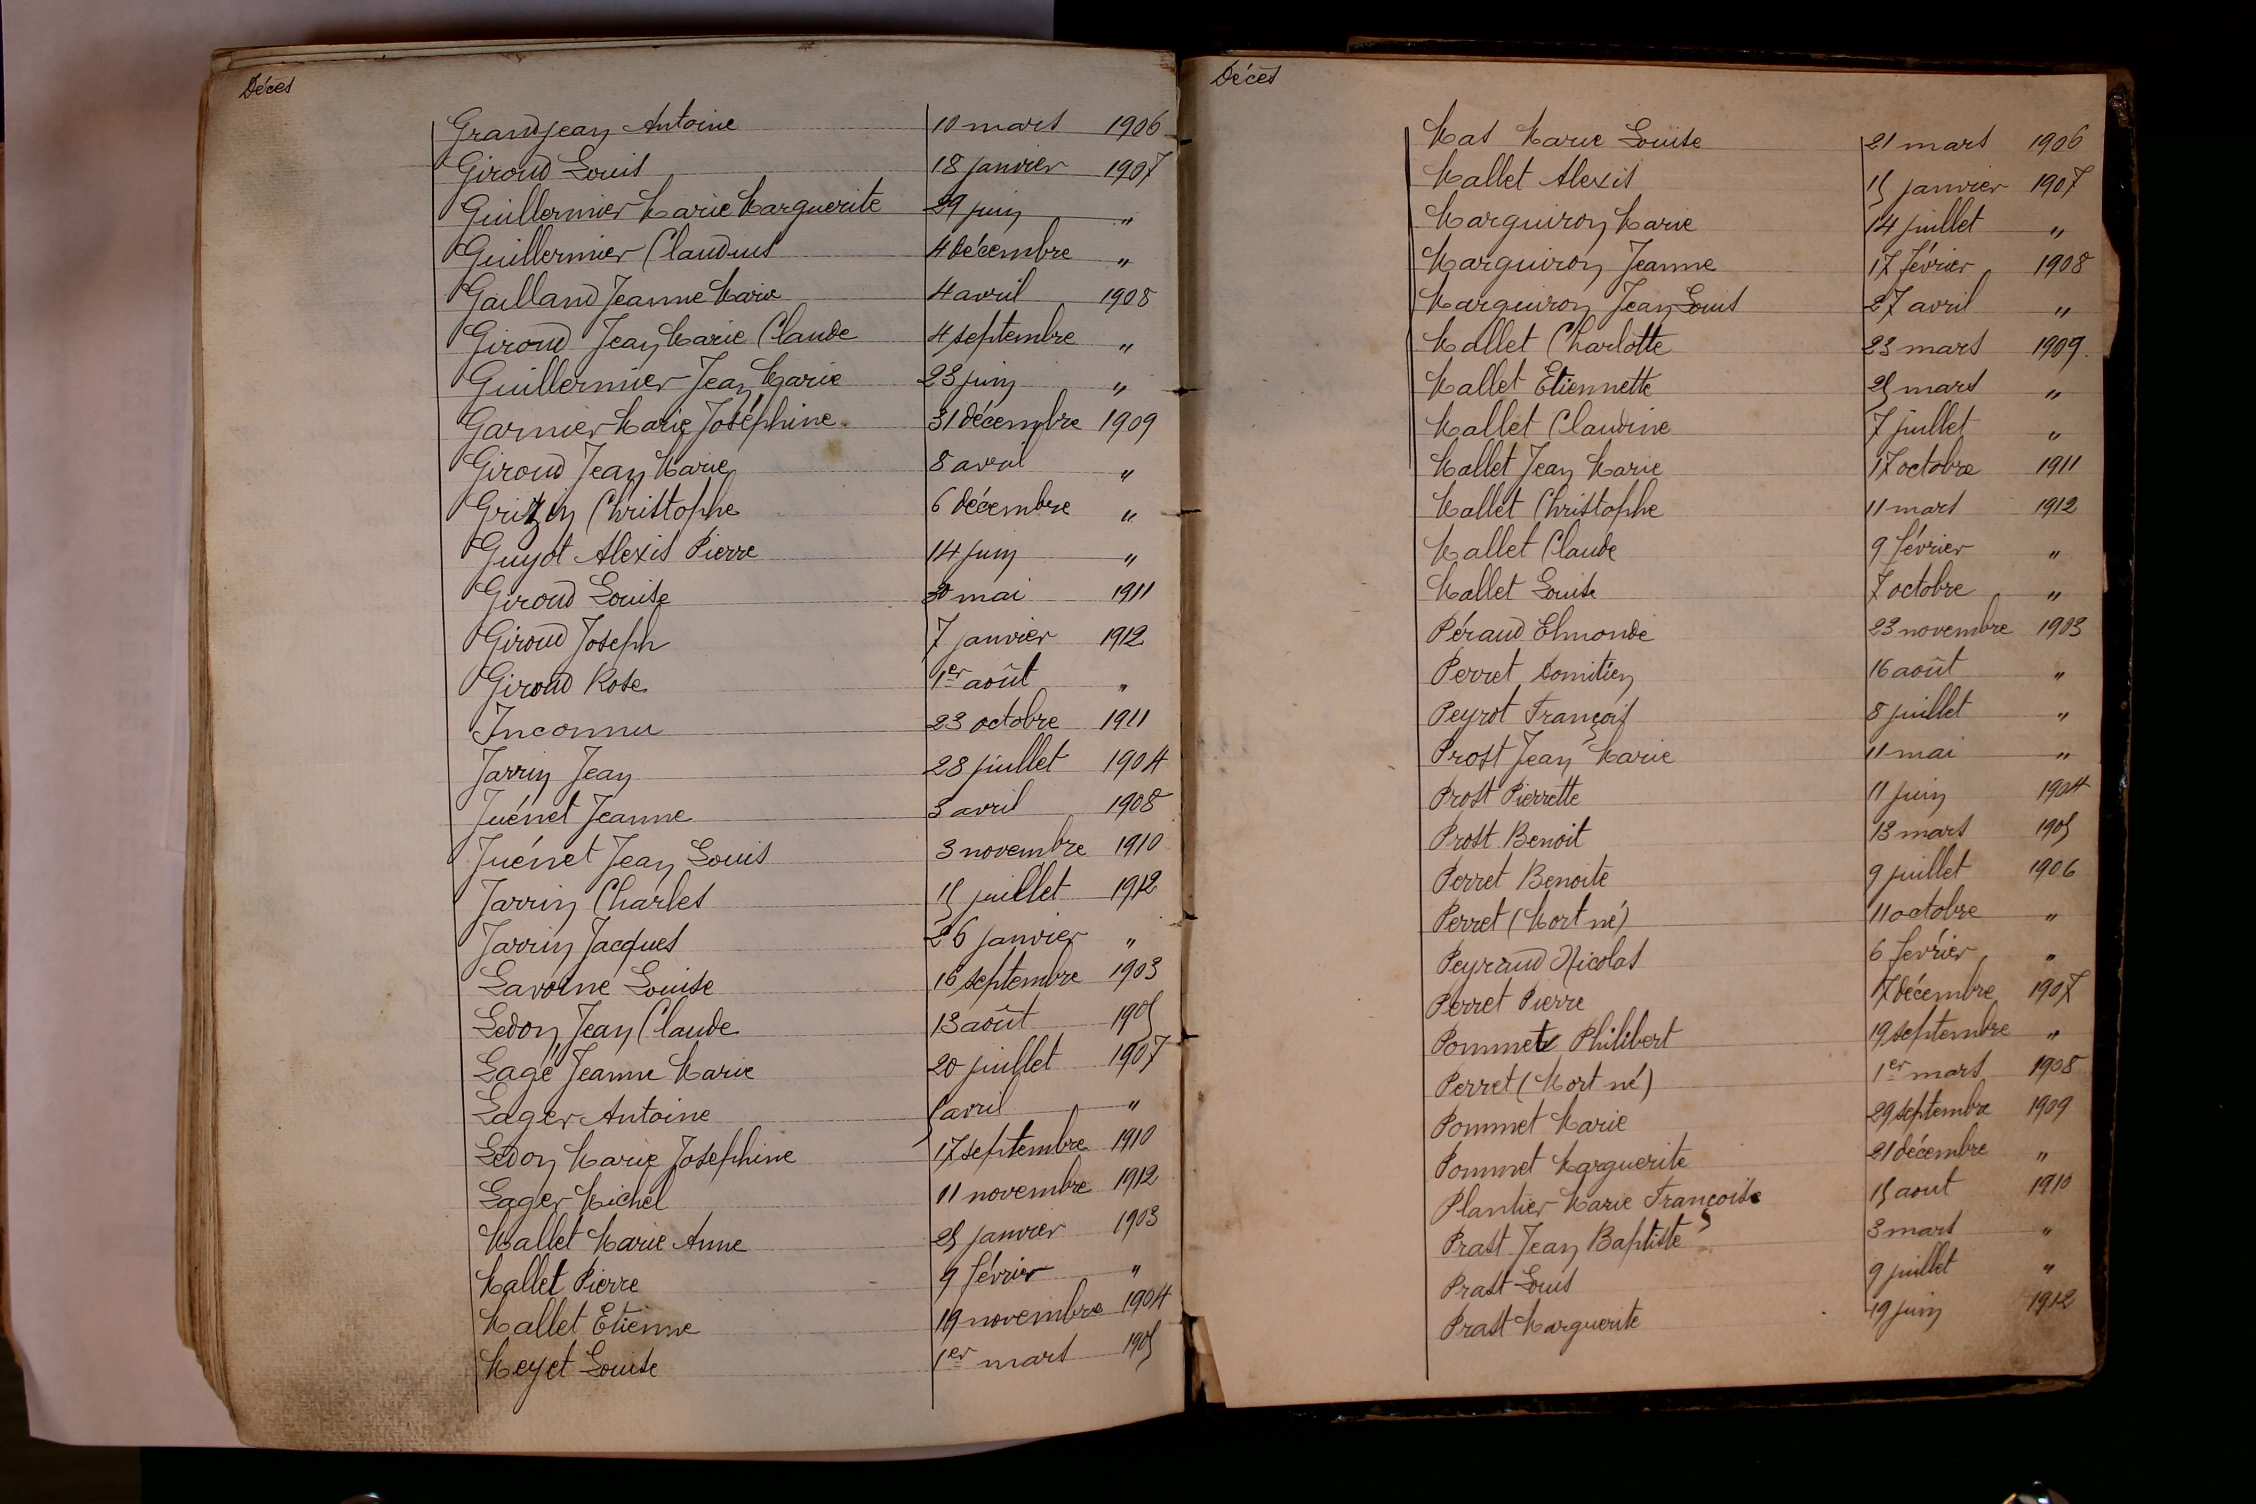 Décès
Grandjean Antoine 10 mars 1906
Giroud Louis 18 janvier 1907
Guillermier Marie Marguerite 29 juin "
Guillermier Claudius 4 décembre "
Gailland Jeanne Marie 4 avril 1908
Giroud Jean Marie Claude 4 septembre "
Guillermier Jean Marie 23 juin "
Garnier Marie Joséphine 31 décembre 1909
Giroud Jean Marie 8 avril "
Christophe 6 décembre "
Guyot Alexis Pierre 14 juin "
Giroud Louise 30 mai 1911
Giroud Joseph 7 janvier 1912
Giroud Rose 1er août "
Inconnu 23 octobre 1911
Jarrin Jean 28 juillet 1904
Juénet Jeanne 3 avril 1908
Juénet Jean Louis 3 novembre 1910
Jarrin Charles 15 juillet 1912
Jarrin Jacques 26 janvier "
Lavoine Louise 16 septembre 1903
Ledon Jean Claude 13 août 1905
Lagé Jeanne Marie 20 juillet 1907
Lager Antoine 5 avril "
Ledon Marie Josephine 17 septembre 1910
Lager Michel 11 novembre 1912
Mallet Marie Anne 25 janvier 1903
Mallet Pierre 9 février "
Mallet Etienne 19 novembre 1904
Meyet Louise 1er mars 1905
Décès
Mas Marie Louise 21 mars 1906
Mallet Alexis 15 janvier 1907
Marguiron Marie 14 juillet "
Marguiron Jeanne 17 février 1908
Marguiron Jean Louis 27 avril "
Mallet Charlotte 23 mars 1909
Mallet Etiennette 25 mars "
Mallet Claudine 7 juillet "
Mallet Jean Marie 17 octobre 1911
Mallet Christophe 11 mars 1912
Mallet Claude 9 février "
Mallet Louise 7 octobre "
Péraud Elmonde 23 novembre 1903
Perret Domitien 16 août "
Peyrot François 8 juillet "
Prost Jean Marie 11 mai "
Prost Pierrette 11 juin 1904
Prost Benoit 13 mars 1905
Perret Benoite 9 juillet 1906
Perret (Mort né) 11 octobre "
Peyraud Nicolas 6 février "
Perret Pierre 17 décembre 1907
Pommet Philibert 19 septembre "
Perret (Mort né) 1er mars 1908
Pommet Marie 29 septembre 1909
Pommet Marguerite 21 décembre "
Plantier Marie Françoise 15 aout 1910
Prast Jean Baptiste 3 mars "
Prast Louis 9 juillet "
Prast Marguerite 19 juin 1912